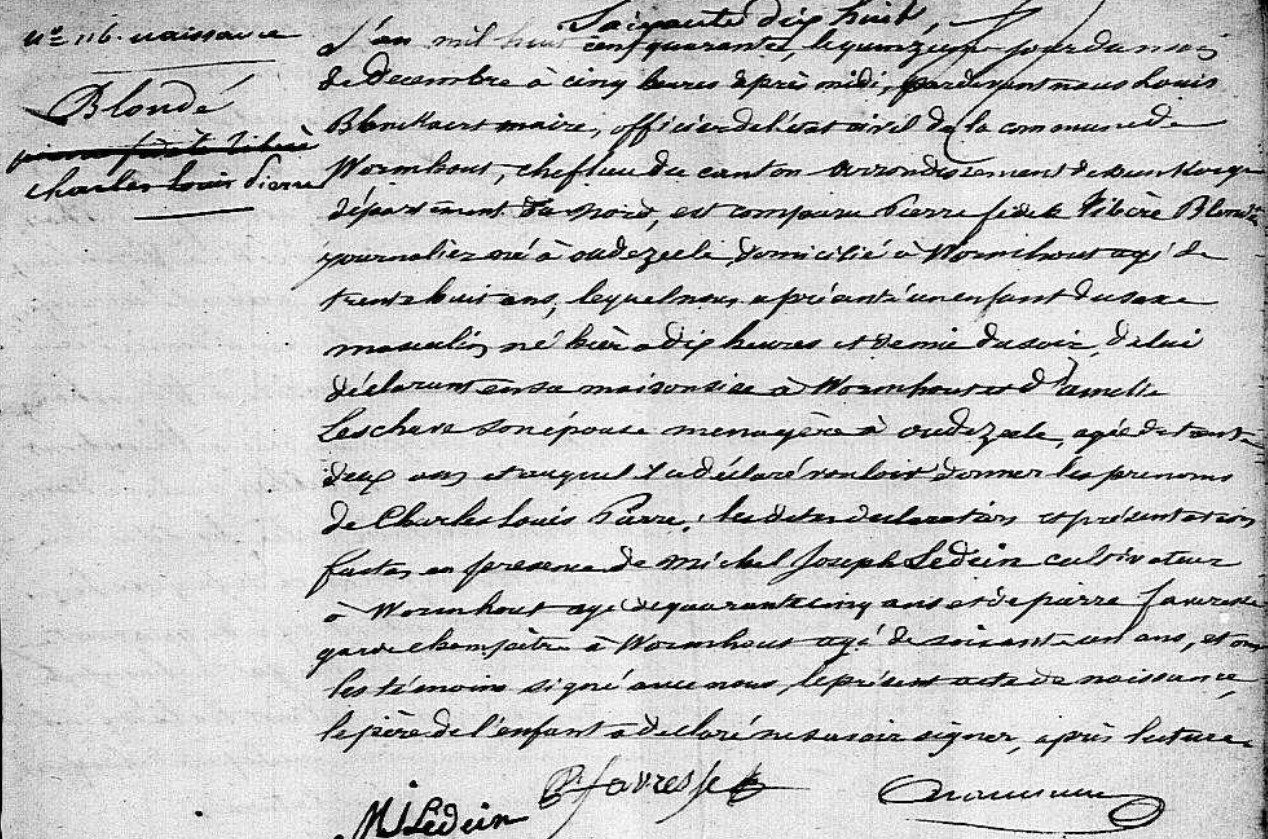 nº 116. naissance
Blondé
pierre fidele libère
charles louis Pierre
Soixante dix huit,
L'an mil huit cent quarante, le quinzieme jour du mois
de Decembre à cinq heures après midi, pardevant nous Louis
maire, officier de l'état civil de la commune de
Wormhout, chef lieu du canton arrondissement de Dunkerque
département du Nord, est comparu Pierre fidele libère Blondé
journalier né à oudezeele, domicilié à Wormhout agé de
trente huit ans, lequel nous a présenté un enfant du sexe
masculin né hier à dix heures et demie du soir, de lui
déclarant en sa maison sise à Wormhout et d'amelie
Leschave son épouse menagère à oudezeele, agée de trente
deux ans et auquel il a déclaré vouloir donner les prenoms
de Charles Louis Pierre, les dites declaration et présentation
faites en presence de Michel Joseph Ledein cultivateur
à Wormhout agé de quarante cinq ans et de pierre favresse
garde champêtre à Wormhout agé de soixante un ans, et ont
les témoins signé avec nous, le présent acte de naissance
le père de l'enfant a declaré ne savoir signer, après lecture
P. favresse
M J Ledein